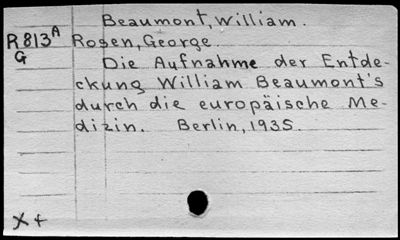 Beaumont, William.
R813A Rosen, George.
G Die Aufnahme der Entde-
ckung William Beaumont's
durch die europäische Me-
dizin. Berlin, 1935.
X +